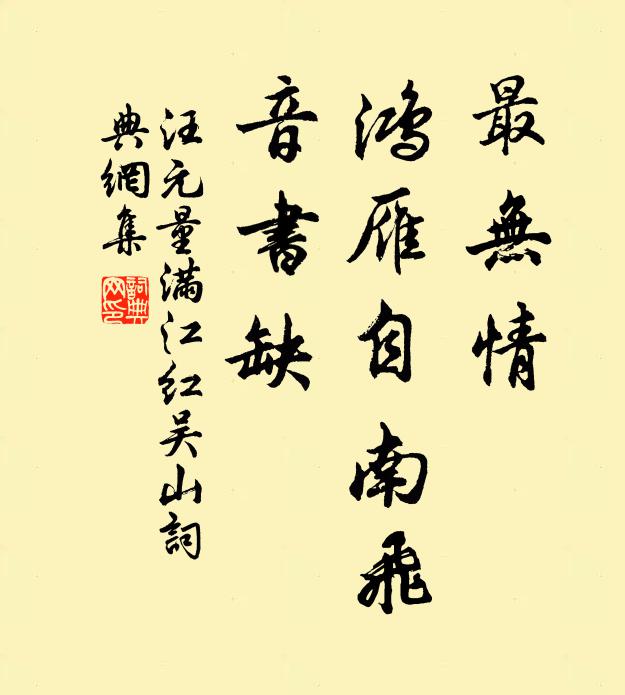 最無情
鴻雁自南飛
音書缺
汪元量滿江红吴山詞
典網集
詞典
网印